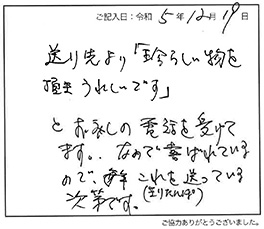 ご記入日：令和 5年 12月 19日
送り先より「珍らしい物を
頂き うれしいです」
とお礼の電話を受けて
ます。なので喜ばれている
ので、毎年これを送っている
次第です。
ご協力ありがとうございました。